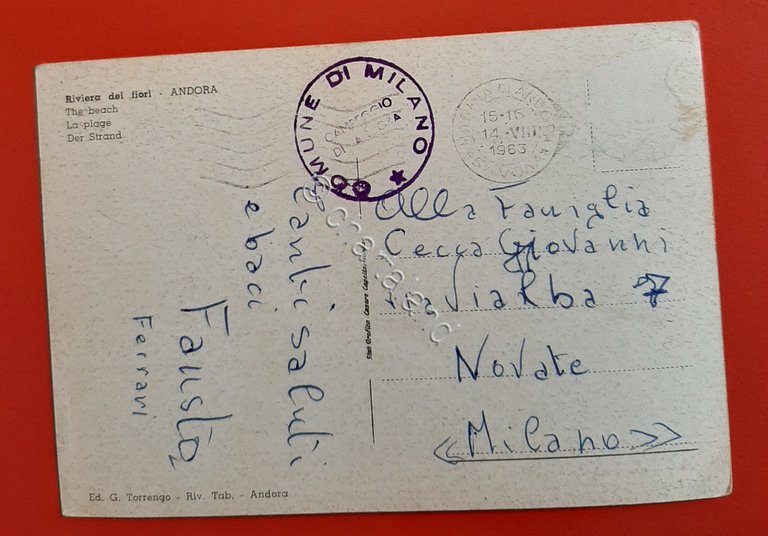 Riviera dei fiori - ANDORA
The beach
La plage
Der Strand
COMUNE DI MILANO
CAMPEGGIO
DI
15-16
14. VIII
1963
Tanti saluti
e baci
Fausto
Ferrari
Alla Famiglia
Cecca Giovanni
Via Vialba 7
Novate
«Milano»
Stab Grafico Cesare Capello
Ed. G. Torrengo - Riv. Tab. - Andora